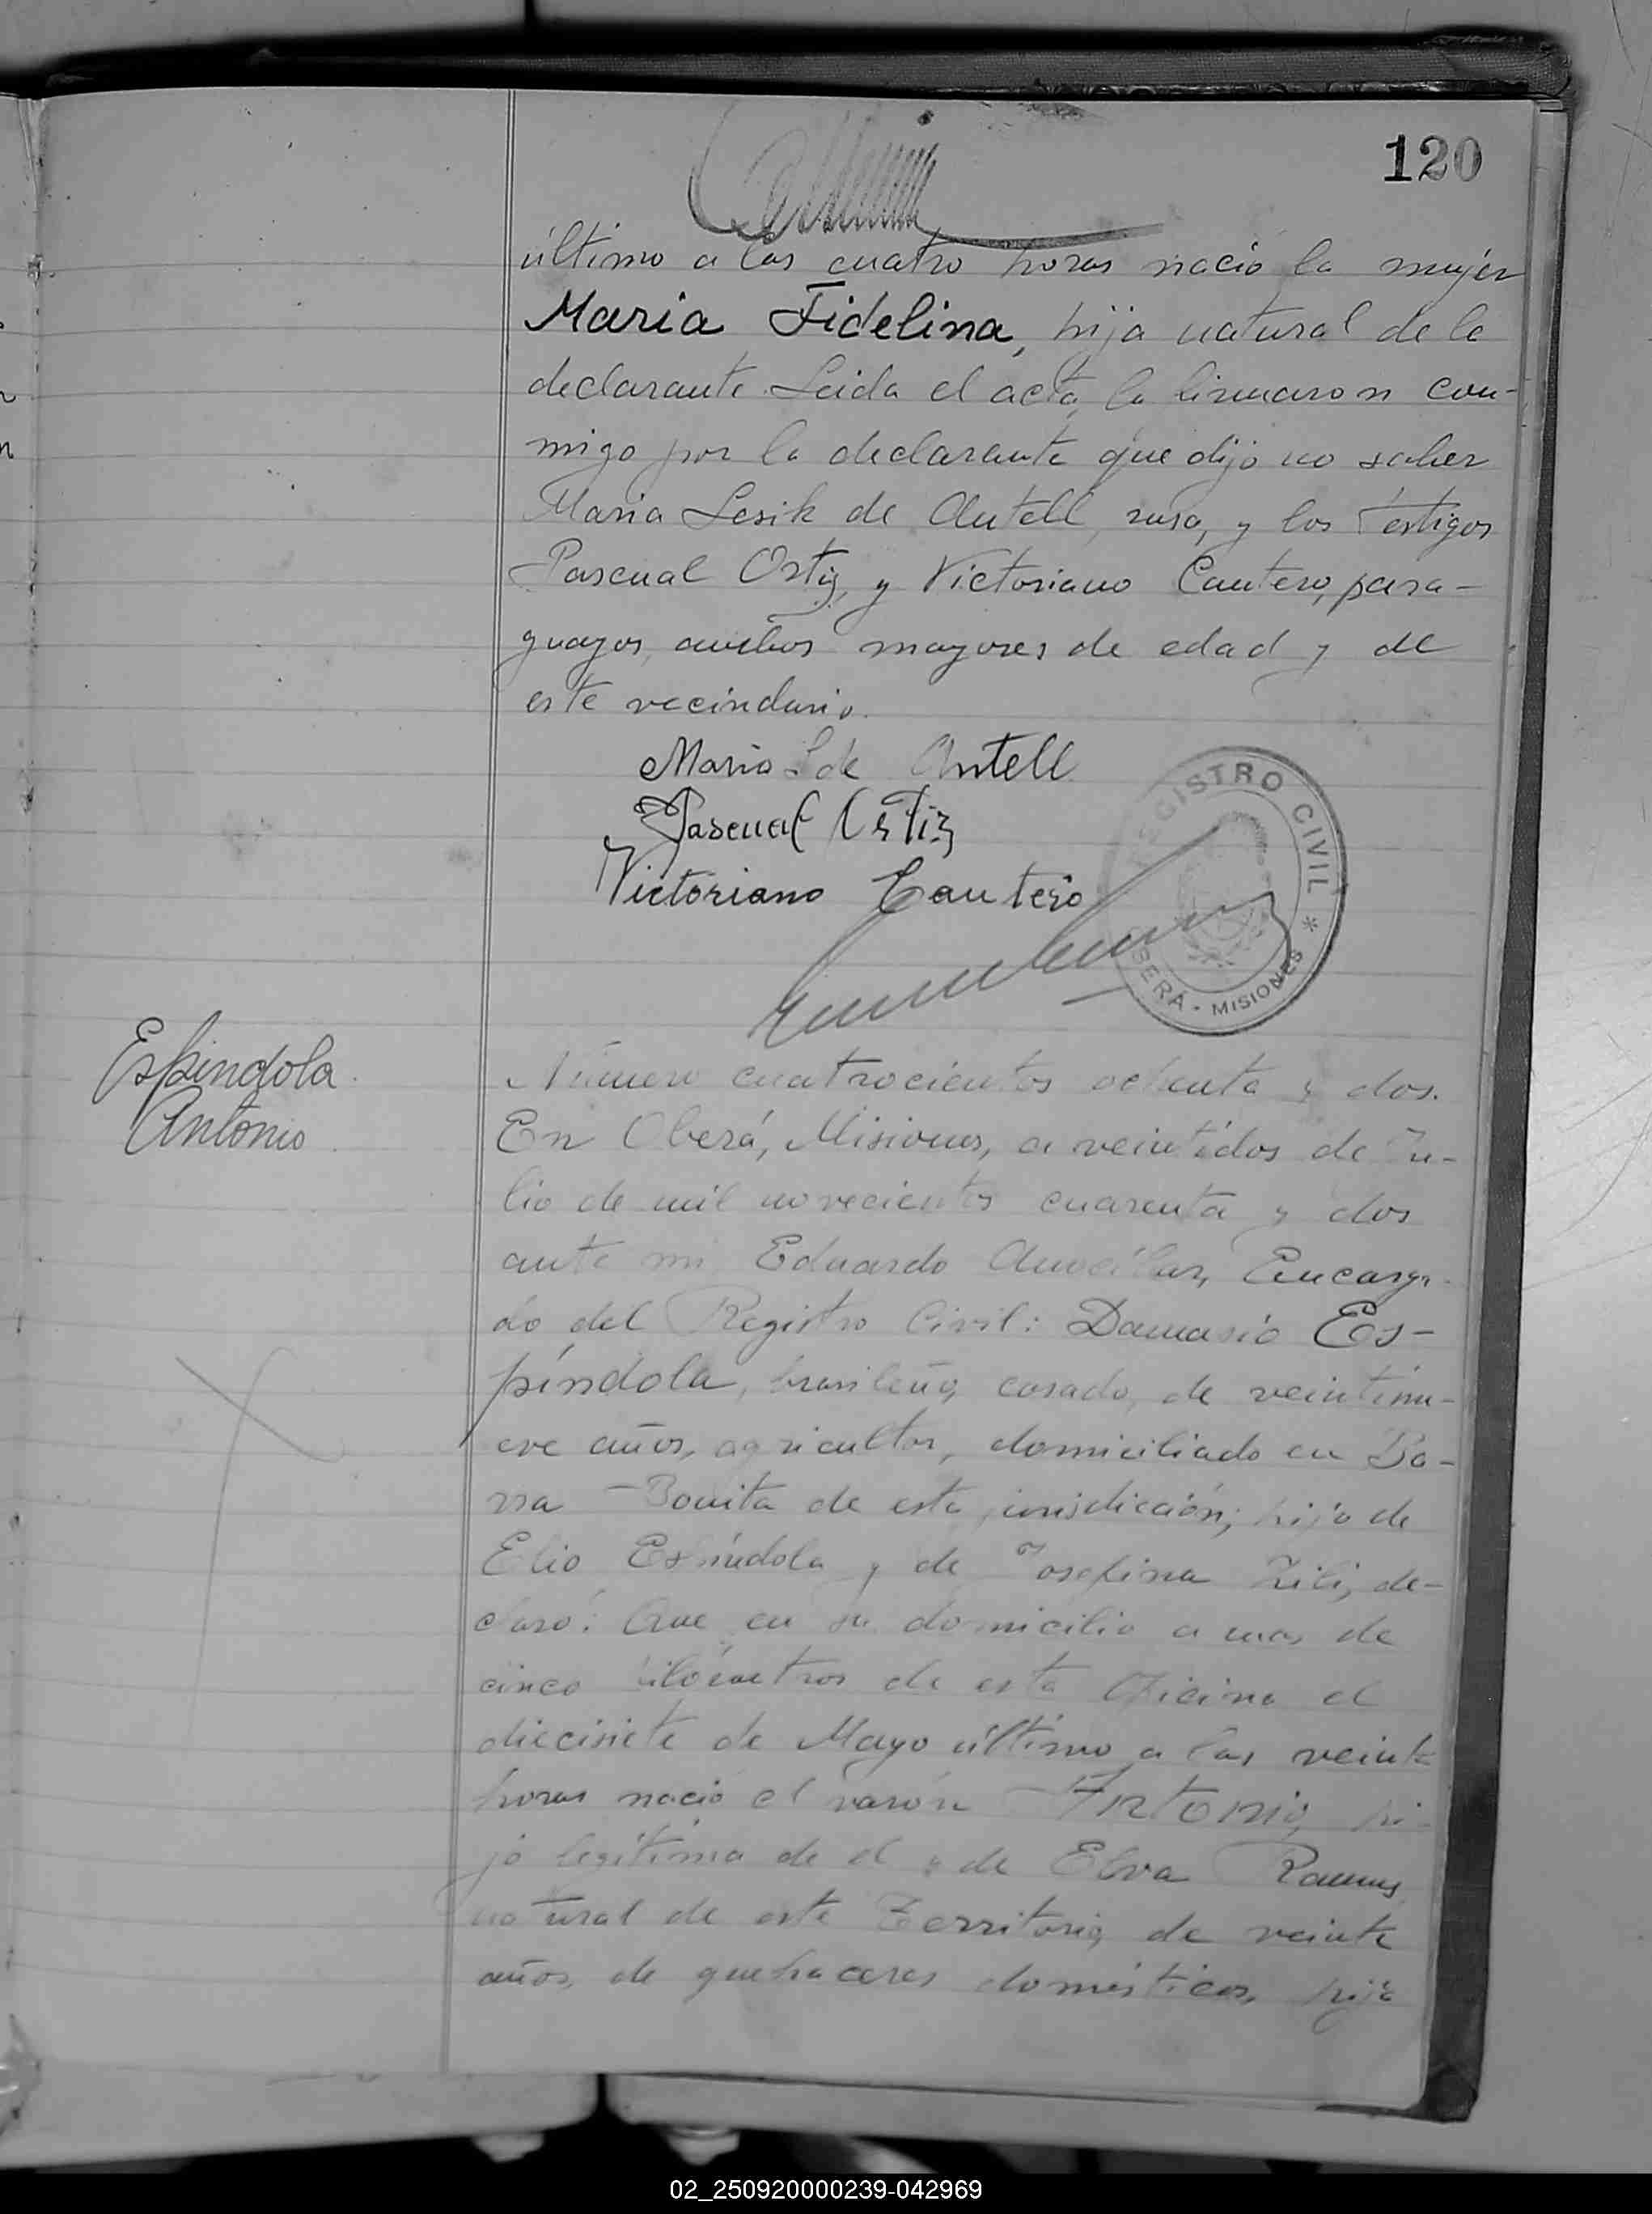 120
último a las cuatro horas nació la mujer
Maria Fidelina, hija natural de la
declarante. Leida el acta, la firmaron con-
migo por la declarante que dijo no saber
Maria Lesik de Antell, rusa, y los testigos
Pascual Ortiz, y Victoriano Cantero, para-
guayos, ambos mayores de edad y de
este vecindario.
Maria L de Antell
Pascual Ortiz
Victoriano Cantero
REGISTRO CIVIL * OBERÁ - MISIONES *
Espindola
Antonio
Número cuatrocientos ochenta y dos.
En Oberá, Misiones, a veintidos de Ju-
lio de mil novecientos cuarenta y dos
ante mi Eduardo Encarga-
do del Registro Civil: Damasio Es-
píndola, brasileño, casado, de veintinu-
eve años, agricultor, domiciliado en Ba-
rra Bonita de esta jurisdicción; hijo de
Elio Espíndola y de Josefina de-
claró: Que en su domicilio a mas de
cinco kilómetros de esta Oficina el
diecisiete de Mayo último a las veinte
horas nació el varón Antonio, hi-
jo legítima de el y de Elva Ramus,
natural de este Territorio, de veinte
años, de quehaceres domésticos, hija
02_250920000239-042969